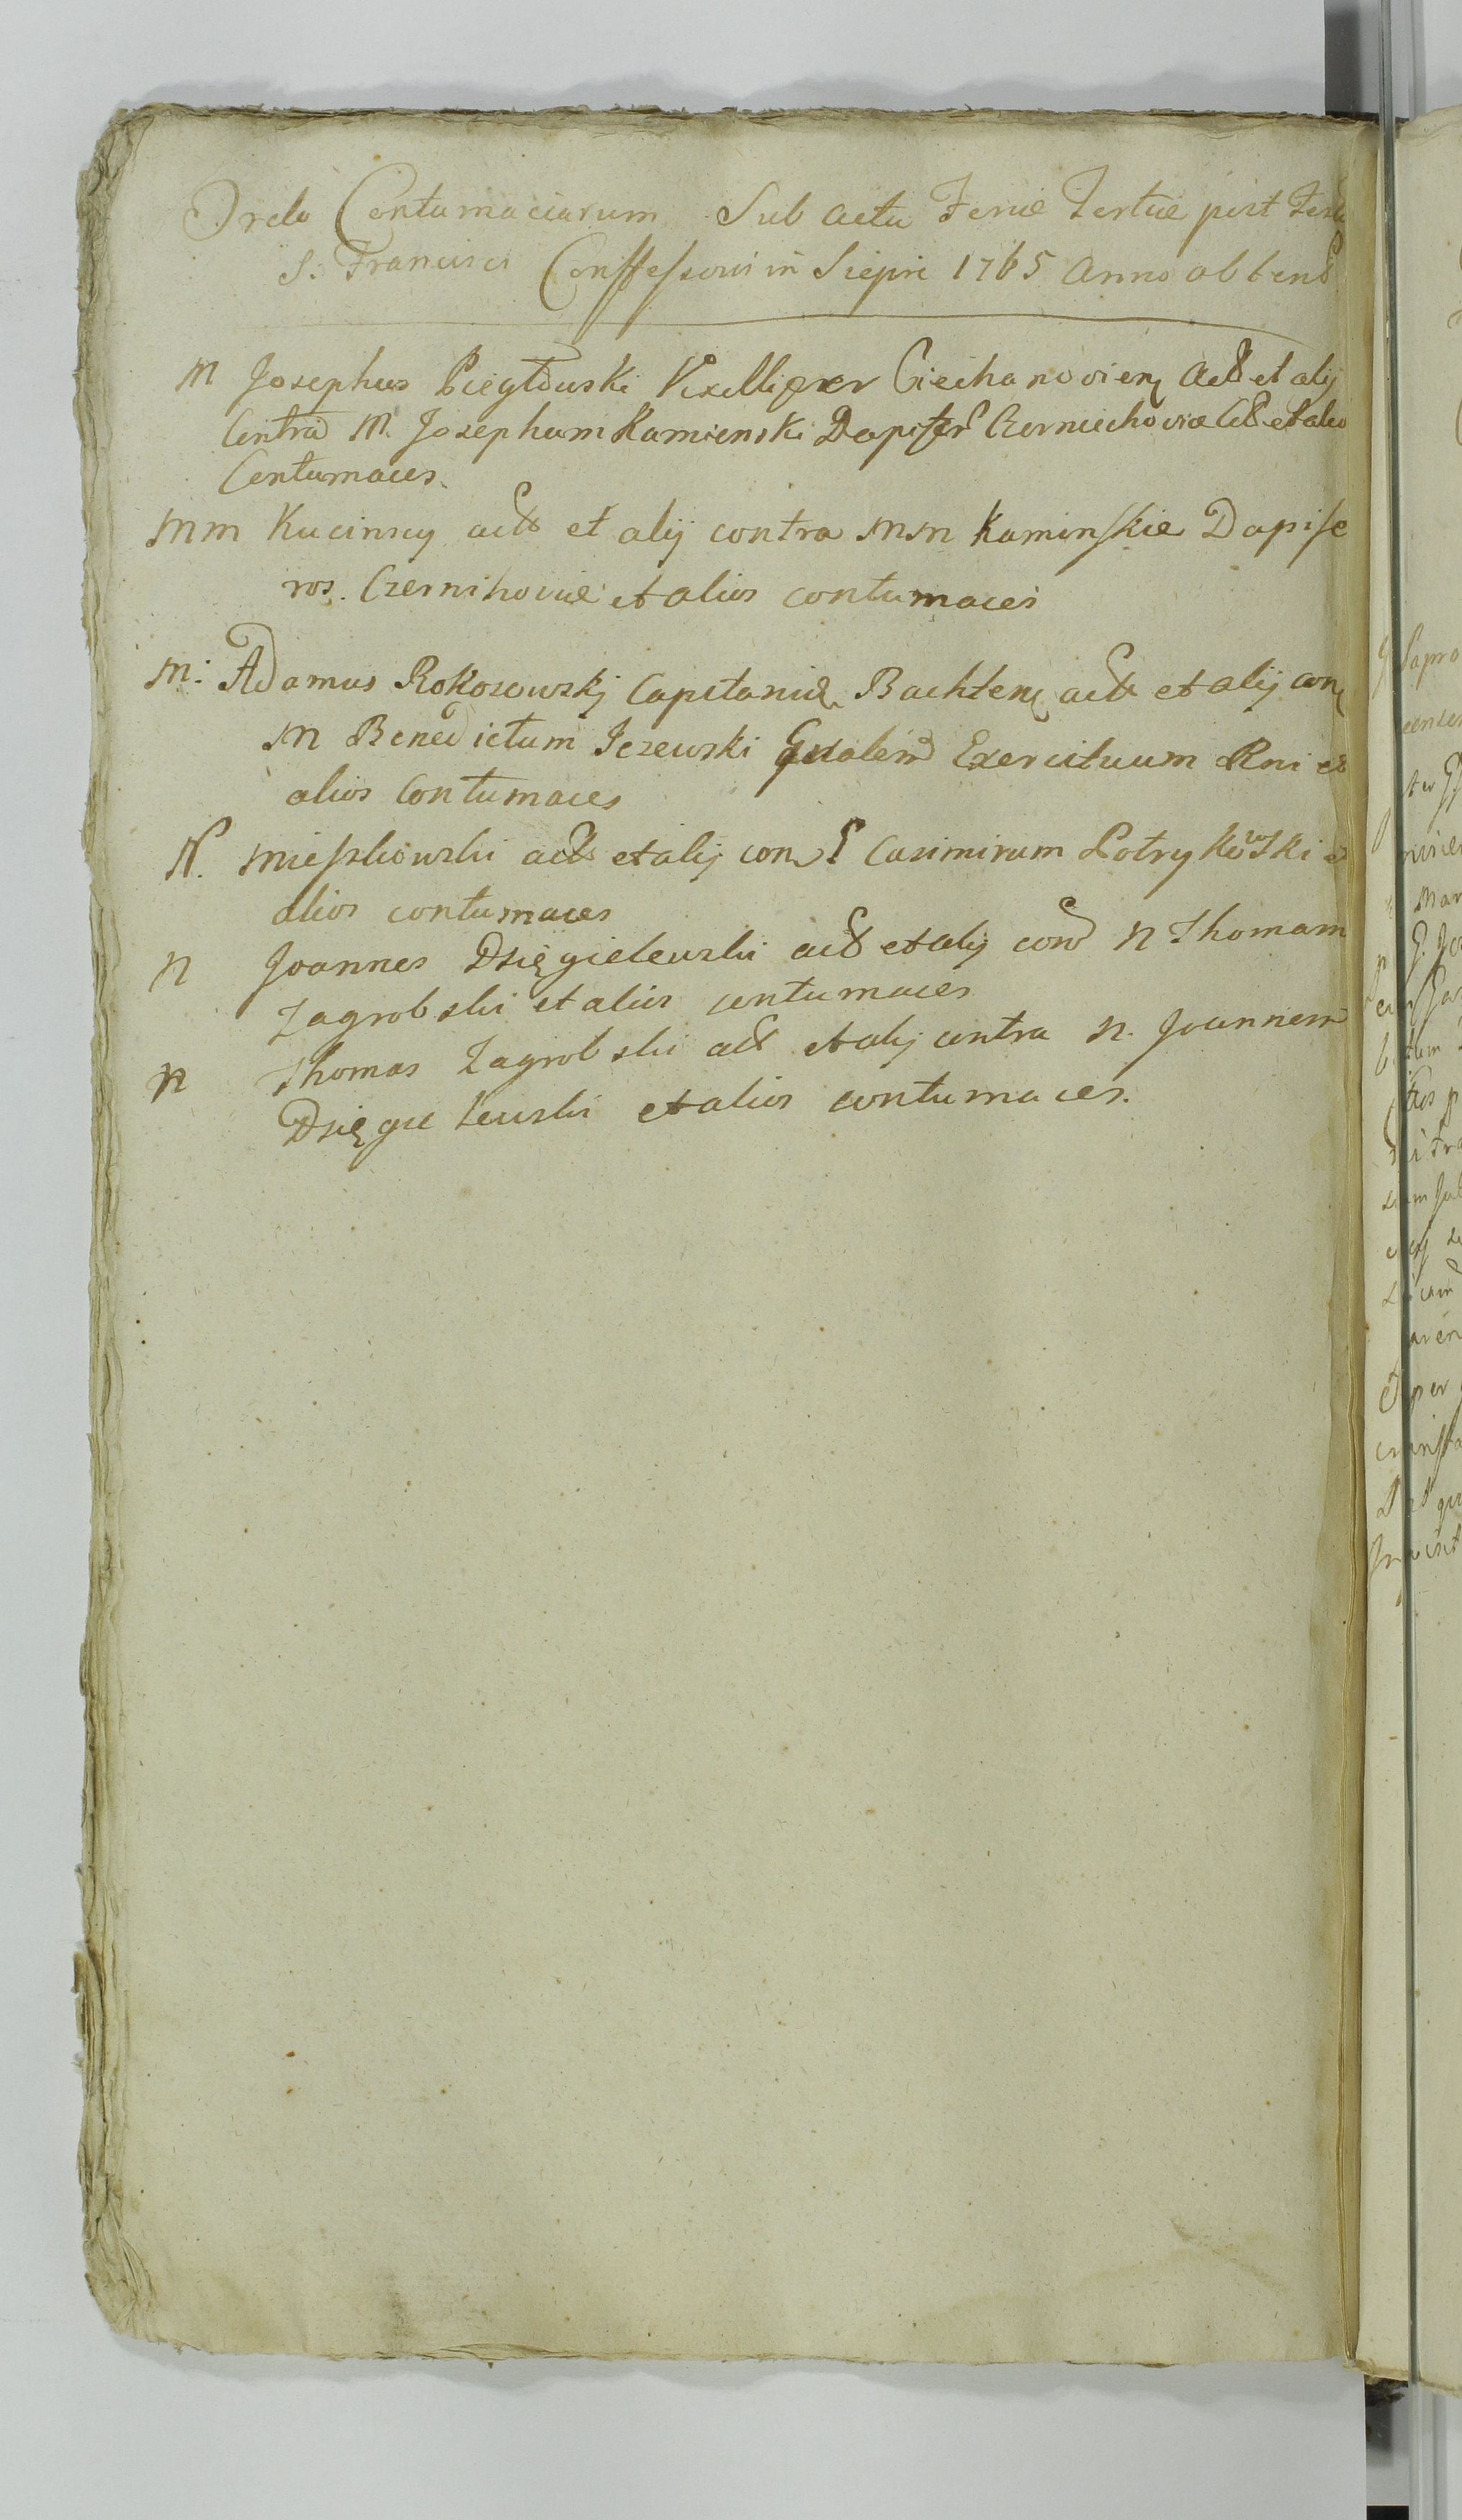 Ordo Contumaciarum Sub actu Feriæ Tertiæ post Fest
S. Francisci Conffessoris in Sieprc 1765 Anno obtent
M Josephus Pieglowski Vexillifer Ciechanovien Act et alij
Contra M. Josephum Kamienski Dapifer Czerniechoviæ Cit et alios
Contumaces.
MM Kucinscy act et alij contra MM Kaminskie Dapife
ros. Czernihoviæ et alios contumaces
M: Adamus Rokosowskj Capitanid Bachten act et alij con
M Benedictum Jezewski Gnalem Exercituum Rni et
alios Contumaces
N. Mieszkowski act et alij con G Casimirum Lotrykowski et
alios contumaces
N Joannes Dzięgielewski act et alij con N Thomam
Zagrobski et alios contumaces
N Thomas Zagrobski act et alij contra N. Joannem
Dzięgielewski et alios contumaces.